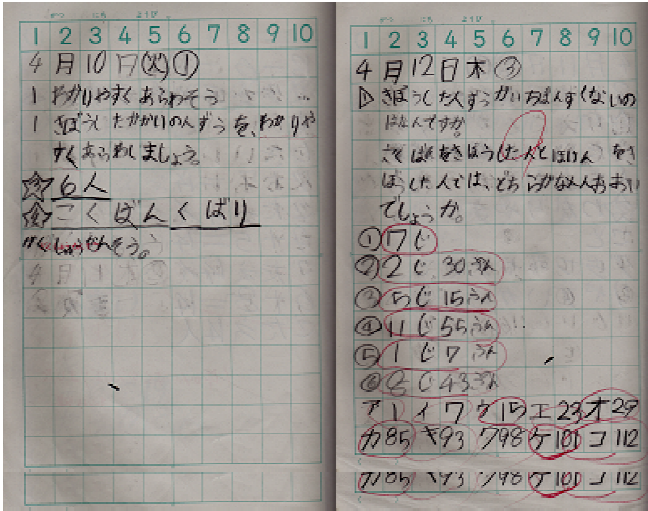 1 2 3 4 5 6 7 8 9 10
4月10日(火)①
1 わかりやすくあらわそう
1 きぼうしたかかりのんずうを、わかりや
すくあらわしましょう。
6人
こくばんくばり
1 2 3 4 5 6 7 8 9 10
4月12日木③
きぼうした人ずうがいちばんすくないの
はなんですか。
きぼうした人とほけん
をき
ぼうした人では、どちらがなん人おおい
でしょうか。
①7じ
②2じ30ぷん
③5じ15ふん
④11じ55ふん
⑤1じ7ふん
⑥8じ43ぷん
ア1イ7ウ15エ23オ29
カ85キ93ク98ケ101コ112
カ85キ93ク98ケ101コ112